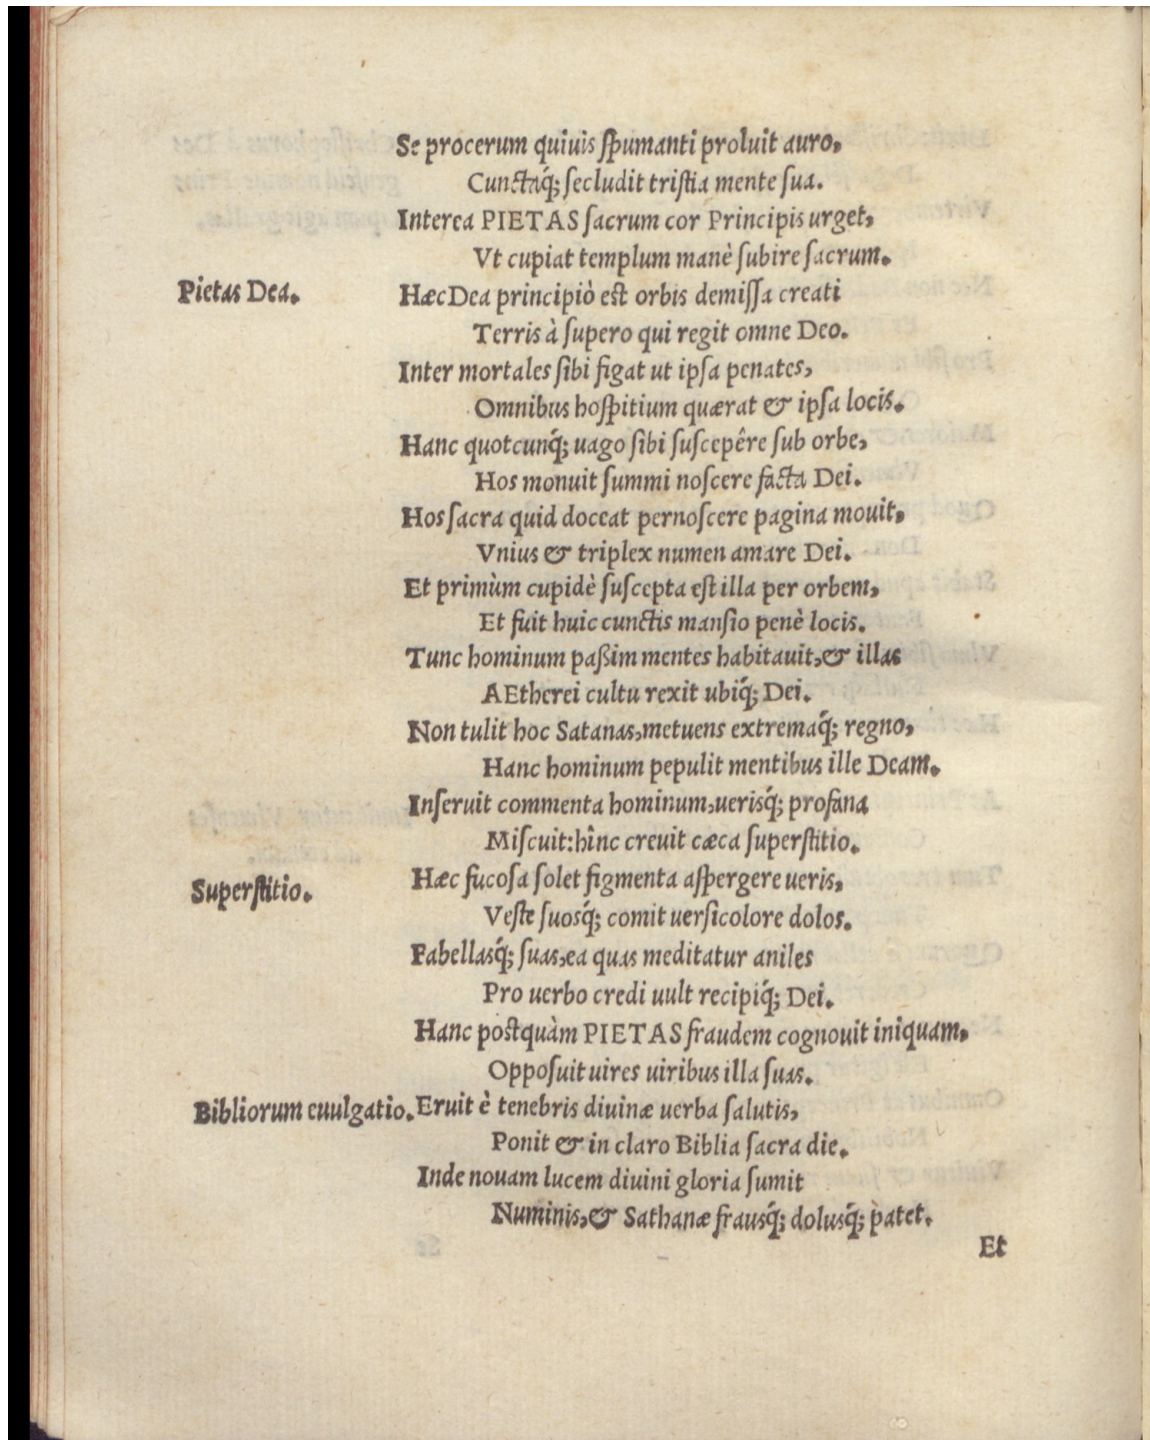 Se procerum quiuis ſpumanti proluit auro,
Cunctaq́; ſecludit triſtia mente ſua.
Interea PIETAS ſacrum cor Principis urget,
Vt cupiat templum manè ſubire ſacrum.
Pietas Dea.
HæcDea principiò eſt orbis demiſſa creati
Terris à ſupero qui regit omne Deo.
Inter mortales ſibi figat ut ipſa penates,
Omnibus hoſpitium quærat & ipſa locis.
Hanc quotcunq́; uago ſibi ſuſcepêre ſub orbe,
Hos monuit ſummi noſcere facta Dei.
Hos ſacra quid doceat pernoſcere pagina mouit,
Vnius & triplex numen amare Dei.
Et primùm cupidè ſuſcepta eſt illa per orbem,
Et fuit huic cunctis manſio penè locis.
Tunc hominum paßim mentes habitauit,& illas
AEtherei cultu rexit ubiq́; Dei.
Non tulit hoc Satanas,metuens extremaq́; regno,
Hanc hominum pepulit mentibus ille Deam.
Inſeruit commenta hominum,uerisq́; profana
Miſcuit:hînc creuit cæca ſuperſtitio.
Superſtitio.
Hæc fucoſa ſolet figmenta aſpergere ueris,
Veſte ſuosq́; comit uerſicolore dolos.
Fabellasq́; ſuas,ea quas meditatur aniles
Pro uerbo credi uult recipiq́; Dei.
Hanc poſtquàm PIETAS fraudem cognouit iniquam,
Oppoſuit uires uiribus illa ſuas.
Bibliorum euulgatio. Eruit è tenebris diuinæ uerba ſalutis,
Ponit & in claro Biblia ſacra die.
Inde nouam lucem diuini gloria ſumit
Numinis,& Sathanæ frausq́; dolusq́; patet.
Et